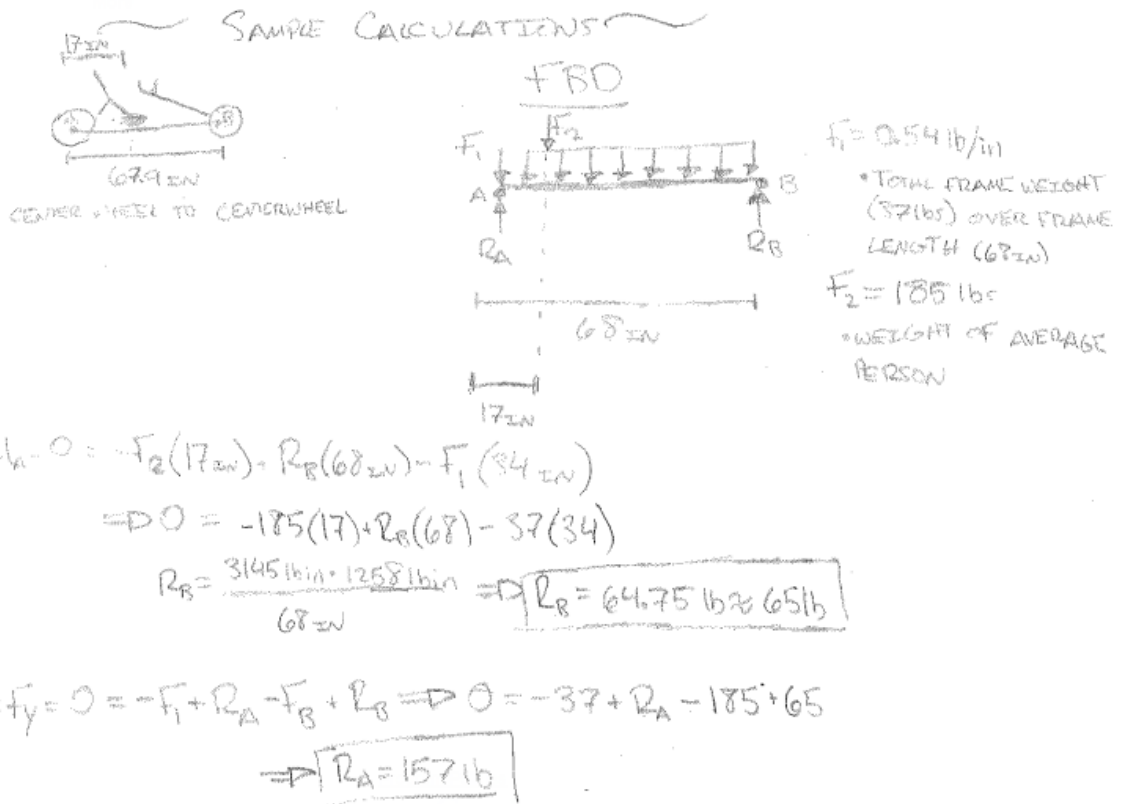 SAMPLE CALCULATIONS
17 IN
67.9 IN
CENTER WHEEL TO CENTERWHEEL
FBD
F₁
F₂
A
B
R_A
R_B
68 IN
17 IN
F₁ = 0.54 lb/in
• TOTAL FRAME WEIGHT
(37lbs) OVER FRAME
LENGTH (68 IN)
F₂ = 185 lbs
• WEIGHT OF AVERAGE
PERSON
0 = -F₂(17 IN) + R_B(68 IN) - F₁(34 IN)
=> 0 = -185(17) + R_B(68) - 37(34)
R_B = 3145 lbin + 1258 lbin
68 IN
=> R_B = 64.75 lb ≈ 65lb
Fy = 0 = -F₁ + R_A - F_B + R_B => 0 = -37 + R_A - 185 + 65
=> R_A = 157 lb